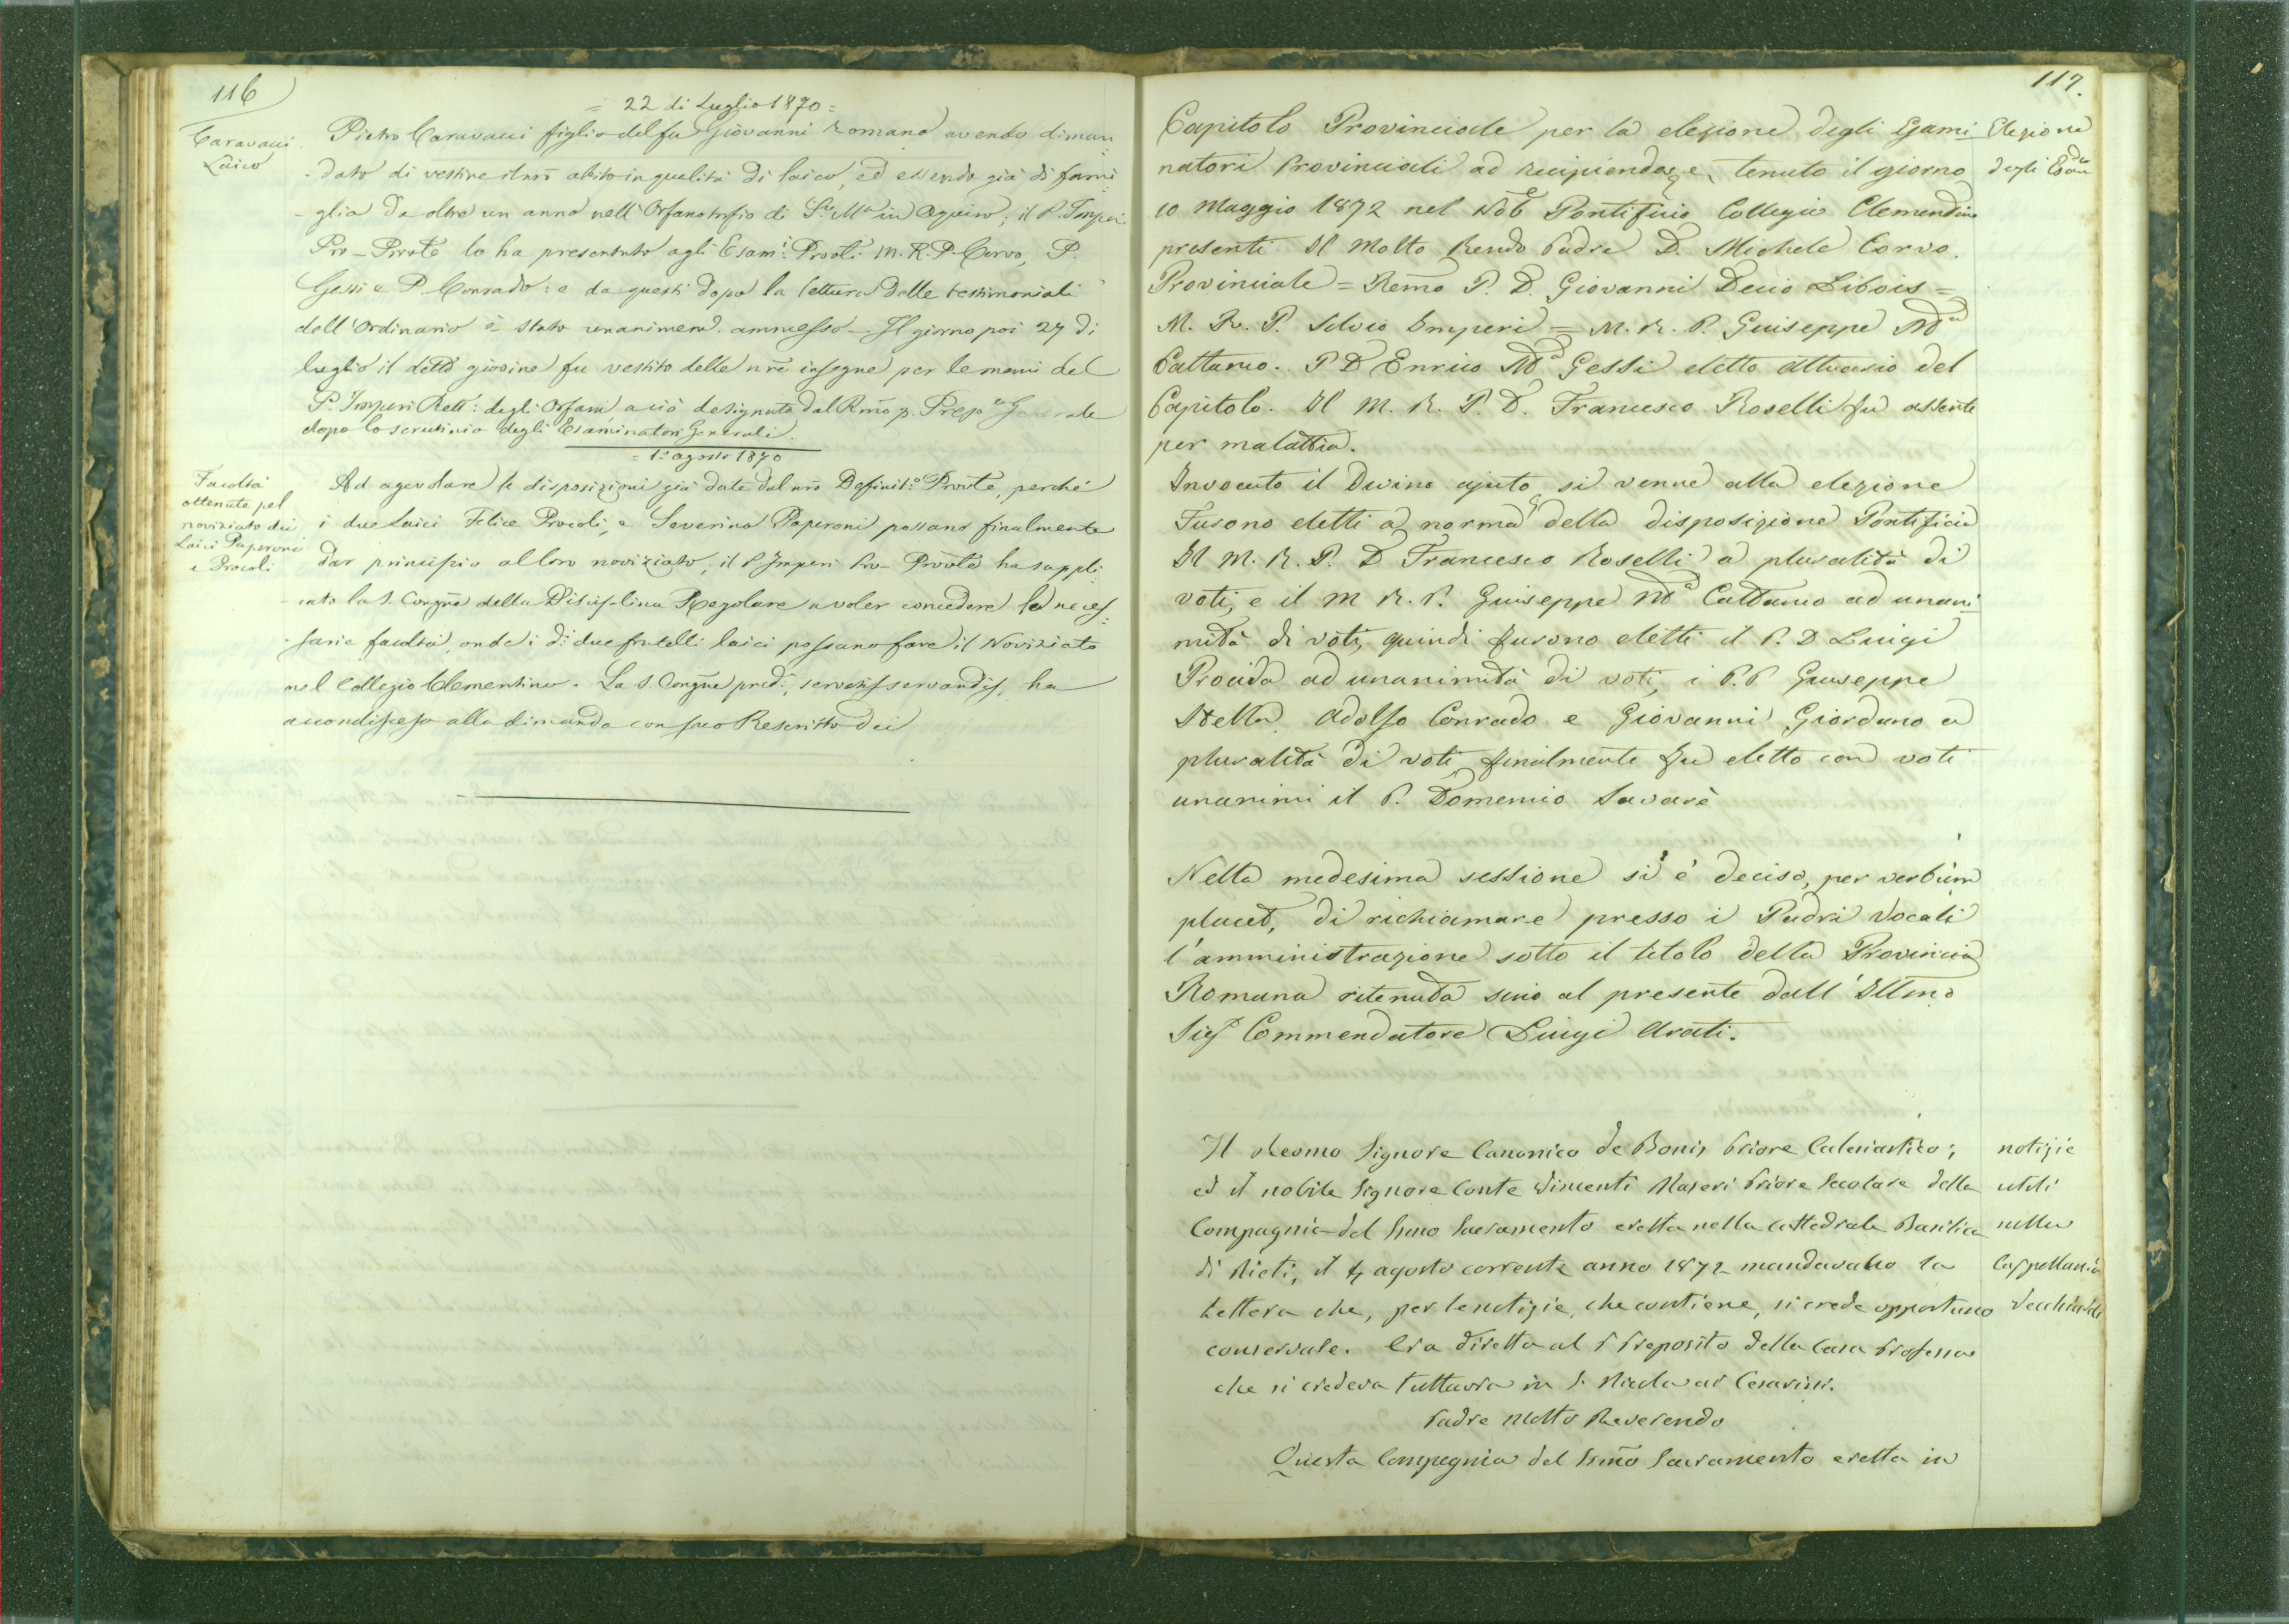 116
= 22 di Luglio 1870 =
Caravacci
Laico
Pietro Caravacci figlio del fu Giovanni Romano avendo diman=
-dato di vestire il nrō abito in qualità di laico, ed essendo già di fami=
-glia da oltre un anno nell'Orfanotrofio di S.ta M.a in Aquiro; il P. Imperi
Pro-Provle lo ha presentato agli Esam.i Provli M. R. P. Corvo, P.
Gessi e P. Conrado: e da questi dopo la lettura delle testimoniali
dell'Ordinario è stato unanimem. ammesso - Il giorno poi 27 di
luglio il detto giovine fu vestito delle nrē insegne per le mani del
P. Imperi Rett: degli Orfani a ciò designato dal Rmō p. Prep.to Generale
dopo lo scrutinio degli Esaminatori Generali.
= 1.o agosto 1870
Facoltà
ottenute pel
noviziato dei
Laici Paperoni
e Procoli
Ad agevolare le disposizioni già date dal nrō Definit.o Provle, perché
i due Laici Felice Procoli, e Severino Paperoni possano finalmente
dar principio al loro noviziato, il P. Imperi Pro-Provle ha suppli=
-cato la S. Congnē della Disciplina Regolare a voler concedere le neces=
-sarie facoltà, onde i di due fratelli laici possano fare il Noviziato
nel Collegio Clementino. La S. Congnē pred:, servatis servandis, ha
accondisceso alla dimanda con suo Rescritto dei
117.
Capitolo Provinciale per la elezione degli Esami
natori Provinciali ad recipiendos, e, tenuto il giorno
10 Maggio 1872 nel Nob.e Pontificio Collegio Clementino
presenti Il Molto Rendo Padre D. Michele Corvo.
Provinciale = Remo P. D. Giovanni Decio Libois =
M. R. P. Silvio Imperi = M. R. P. Guiseppe Ma
Cattaneo. P D Enrico Ma Gessi eletto attuario del
Capitolo. Il M. R. P. D. Francesco Roselli fu assente
per malattia.
Elezione
degli Esam
Invocato il Divino ajuto si venne alla elezione
Furono eletti a norma della disposizione Pontificia
Il M. R. P. D Francesco Roselli a pluralità di
voti, e il M R. P. Guiseppe Ma Cattaneo ad unani
mità di voti, quindi furono eletti il P. D Luigi
Procida ad unanimità di voti, i P.P Giuseppe
Stella Adolfo Conrado e Giovanni Giordano a
pluralità di voti finalmente fu eletto con voti
unanimi il P. Domenico Savarè
Nella medesima sessione si è deciso, per verbum
placet, di richiamare presso i Padri Vocali
l'amministrazione sotto il titolo della Provincia
Romana ritenuta sino al presente dall'Illmo
Sig Commendatore Luigi Arati.
Il Reomo Signore Canonico de Bonis Priore Eclesiastico;
ed il nobile Signore Conte Vincenti Mareri Priore Secolare della
Compagnia del Ssmo Sacramento eretta nella Cattedrale Basilica
di Rieti, il 4 agosto corrente anno 1872 mandavano la
Lettera che, per le notizie, che contiene, si crede opportuno
conservale. Era diretta al P Preposito della Casa Professa
che si credeva tuttavia in S. Nicola ai Cesarini.
notizie
utili
nella
Cappellania
Vecchiarelli
Padre Molto Reverendo
Questa Compagnia del Ssmō Sacramento eretta in